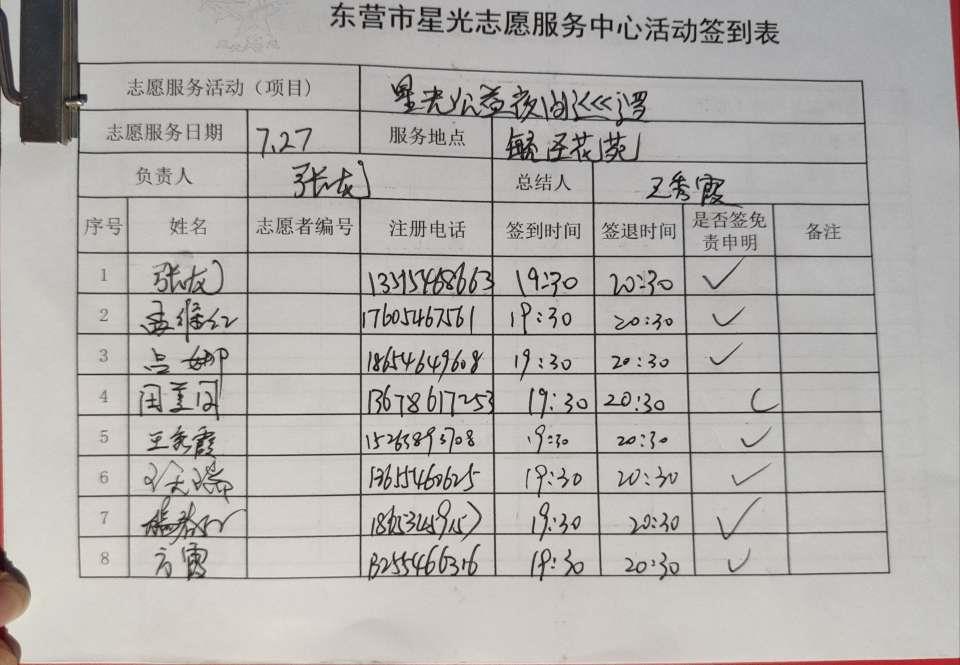 东营市星光志愿服务中心活动签到表
志愿服务活动（项目） 星光公益夜间巡逻
志愿服务日期 7.27 服务地点 花苑
负责人 张友 总结人 王秀霞
序号 姓名 志愿者编号 注册电话 签到时间 签退时间 是否签免责申明 备注
1 张友 13515468663 19:30 20:30 ✓
2 孟维红 17605467561 19:30 20:30 ✓
3 吕娜 18654649608 19:30 20:30 ✓
4 13678617253 19:30 20:30
5 王秀霞 15263893708 19:30 20:30 ✓
6 13655460625 19:30 20:30 ✓
7 19:30 20:30 ✓
8 方霞 13255466316 19:30 20:30 ✓